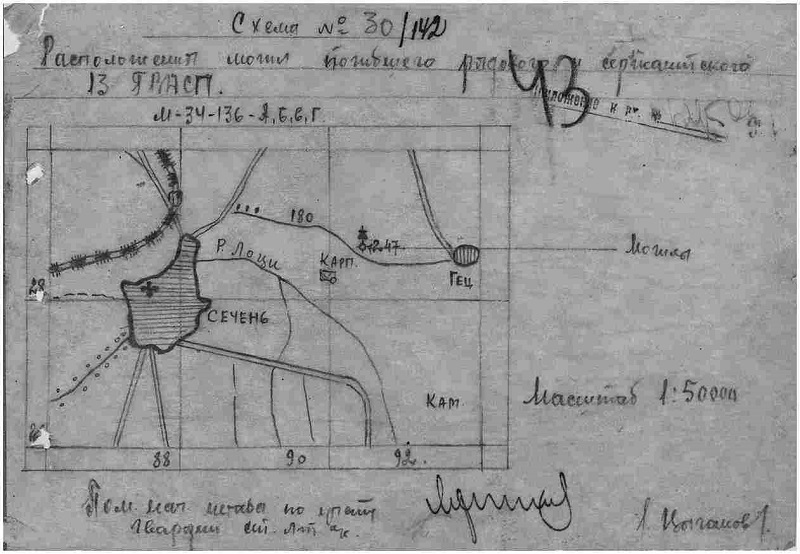 Схема № 30/142
Расположения могил погибшего рядового и сержантского
13 ГВАСП.
М-34-136-А,Б,В,Г.
43
Приложение к вх. №
180
247
Могилы
Р. Лоци
КАРП.
ГЕЦ
28
СЕЧЕНЬ
КАМ.
Масштаб 1:50000
88
90
92.
Пом. нач штаба по
Гвардии ст. Л-т
Цыганов